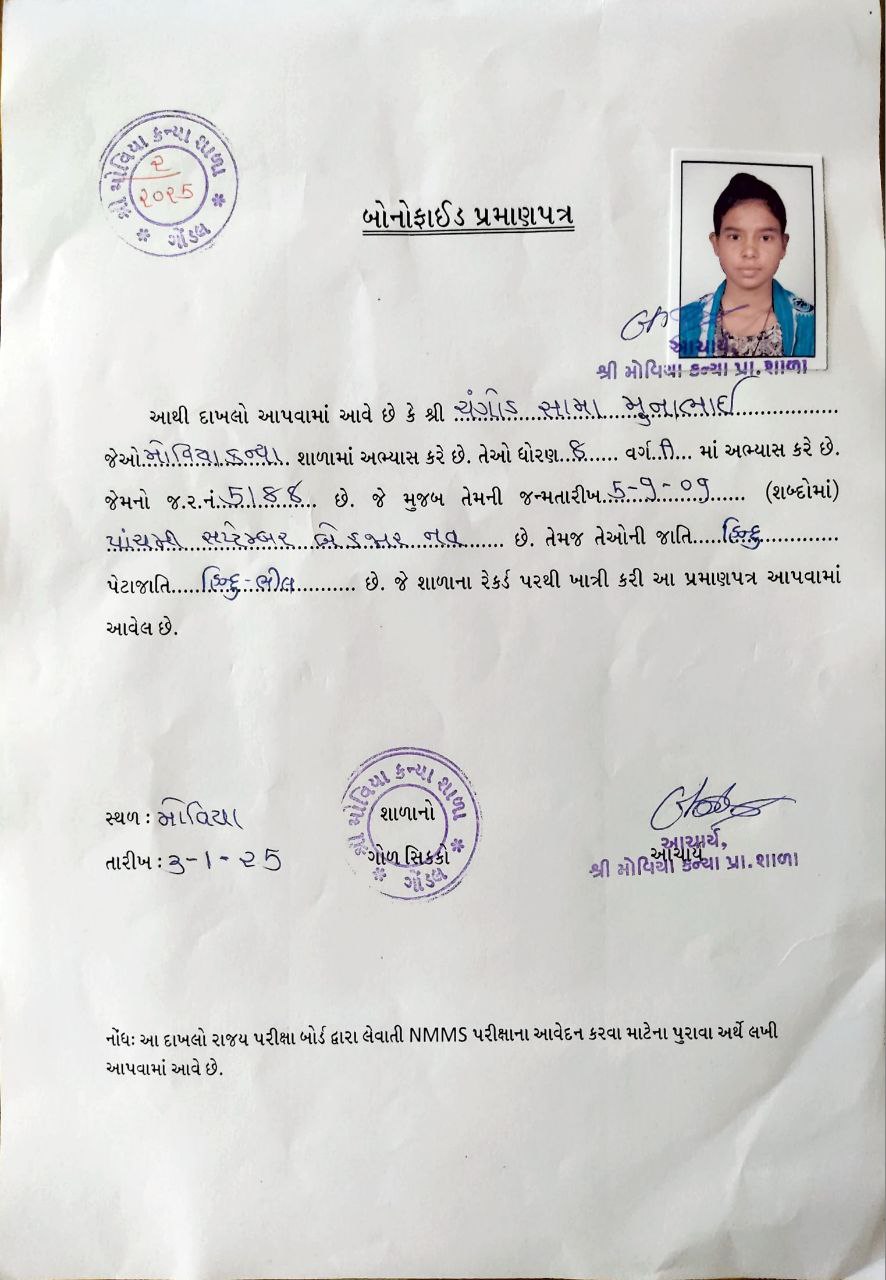 શ્રી મોવિયા કન્યા શાળા
૨
૨૦૨૫
ગોંડલ
બોનોફાઈડ પ્રમાણપત્ર
આચાર્ય,
શ્રી મોવિયા કન્યા પ્રા.શાળા
આથી દાખલો આપવામાં આવે છે કે શ્રી ચંગોડ સામા મુનાભાઈ
જેઓ મોવિયા કન્યા શાળામાં અભ્યાસ કરે છે. તેઓ ધોરણ 8 વર્ગ A માં અભ્યાસ કરે છે.
જેમનો જ.ર.નં. 5188 છે. જે મુજબ તેમની જન્મતારીખ 5-9-09 (શબ્દોમાં)
પાંચમી સપ્ટેમ્બર બે હજાર નવ છે. તેમજ તેઓની જાતિ હિન્દુ
પેટાજાતિ હિન્દુ-ભીલ છે. જે શાળાના રેકર્ડ પરથી ખાત્રી કરી આ પ્રમાણપત્ર આપવામાં
આવેલ છે.
શ્રી મોવિયા કન્યા શાળા
સ્થળ : મોવિયા શાળાનો
તારીખ : ૩-૧-૨૫ ગોળ સિકકો આચાર્ય
ગોંડલ
આચાર્ય,
શ્રી મોવિયા કન્યા પ્રા.શાળા
નોંધ: આ દાખલો રાજય પરીક્ષા બોર્ડ દ્વારા લેવાતી NMMS પરીક્ષાના આવેદન કરવા માટેના પુરાવા અર્થે લખી
આપવામાં આવે છે.